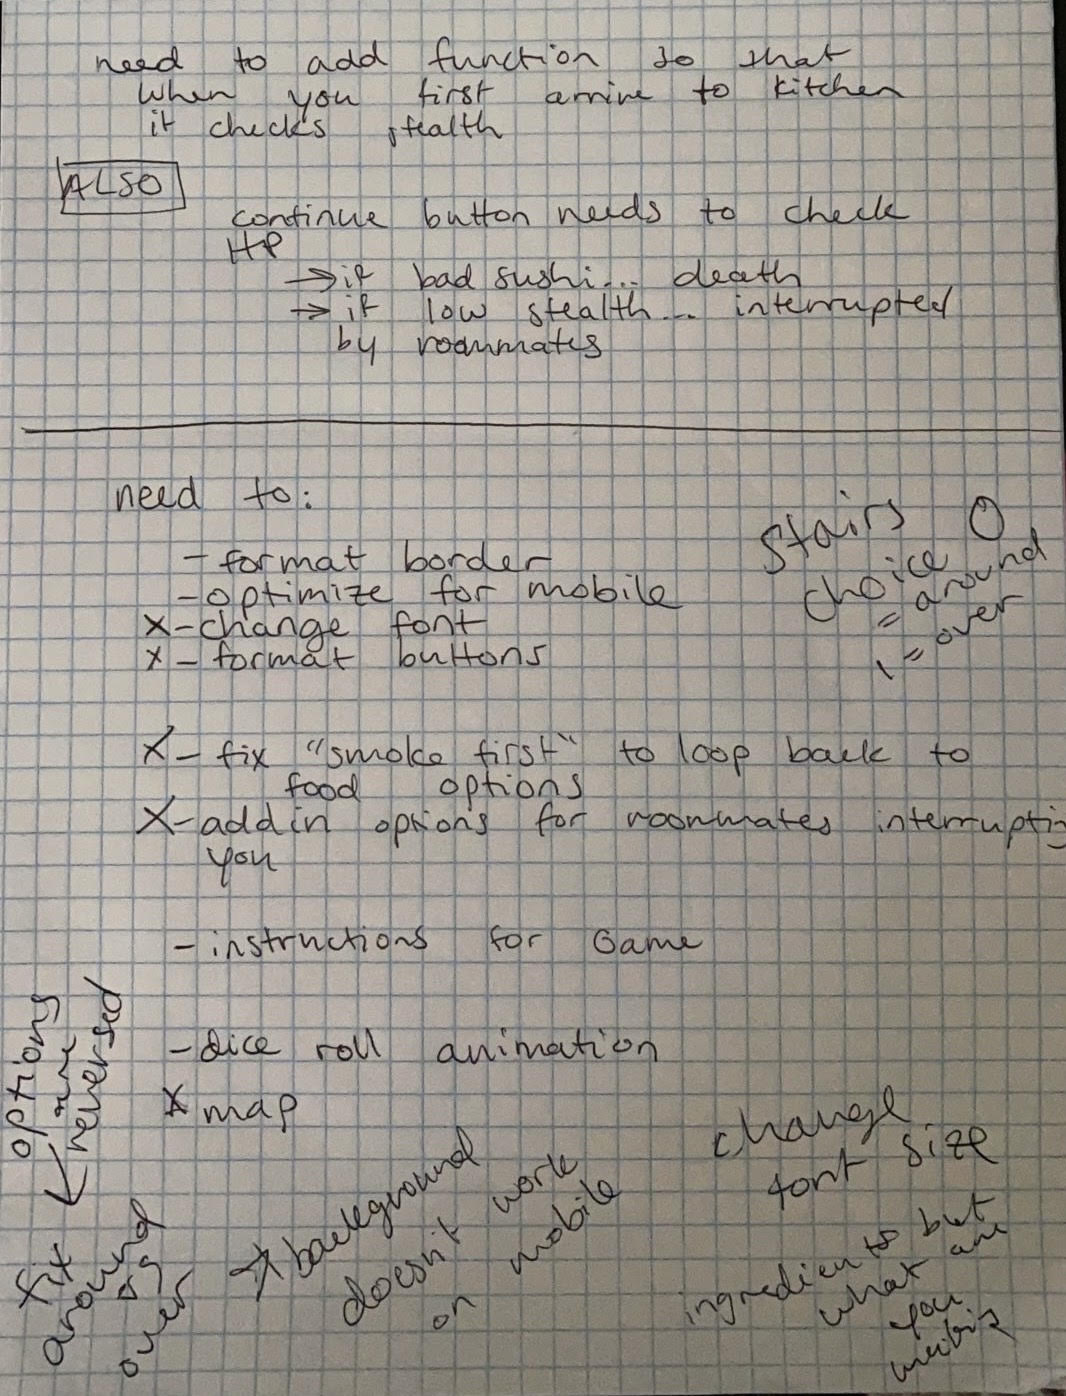 need to add function so that
when you first arrive to kitchen
it checks stealth
ALSO
continue button needs to check
HP
→ if bad sushi... death
→ if low stealth... interrupted
by roommates
need to:
- format border
- optimize for mobile
X - change font
X - format buttons
Stairs 0
choice = around
1 = over
X - fix "smoke first" to loop back to
food options
X - add in options for roommates interrupting
you
- instructions for Game
- dice roll animation
X map
options
are
reversed
fix
around
vs
over
→ background
doesn't work
on mobile
change
font size
ingredients but
what are
you